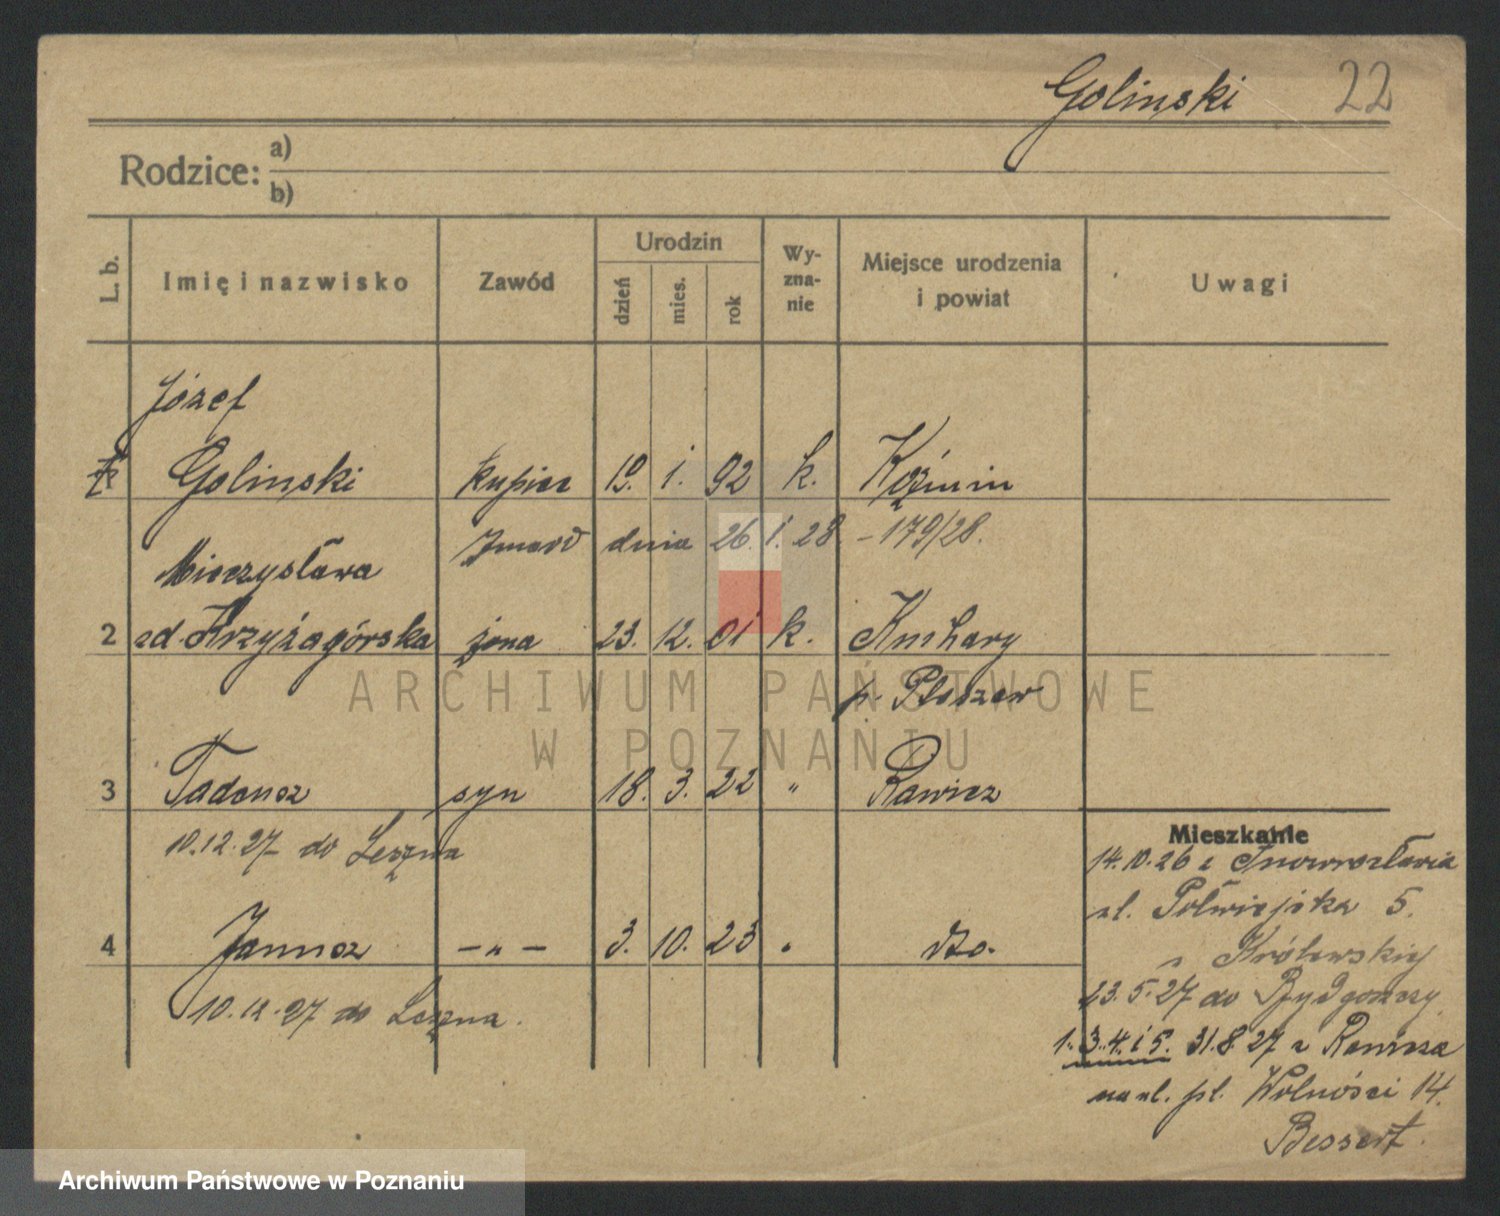 Golinski 22
Rodzice: a)
b)
L. b.
Imię i nazwisko
Zawód
Urodzin
dzień
mies.
rok
Wy-
zna-
nie
Miejsce urodzenia
i powiat
Uwagi
Józef
Golinski kupiec 19. 1. 92 k. Koźmin
Zmarł dnia 26.1.28 - 179/28.
Mieczysława
2 zd. Krzyżagórska żona 23. 12. 01 k. Kuchary
p. Pleszew
3 Tadeusz syn 18. 3. 22 " Rawicz
10.12.27 do Leszna
4 Janusz - " - 3. 10. 23 " dto.
10.12.27 do Leszna.
Mieszkanie
14.10.26 z Inowrocławia
ul. Półwiejska 5.
z Królewskiej
23.5.27 do Bydgoszczy
1. 3. 4. i 5. 31.8.27 z Rawicza
na ul. pl. Wolności 14.
Bessert.
ARCHIWUM PAŃSTWOWE
W POZNANIU
Archiwum Państwowe w Poznaniu